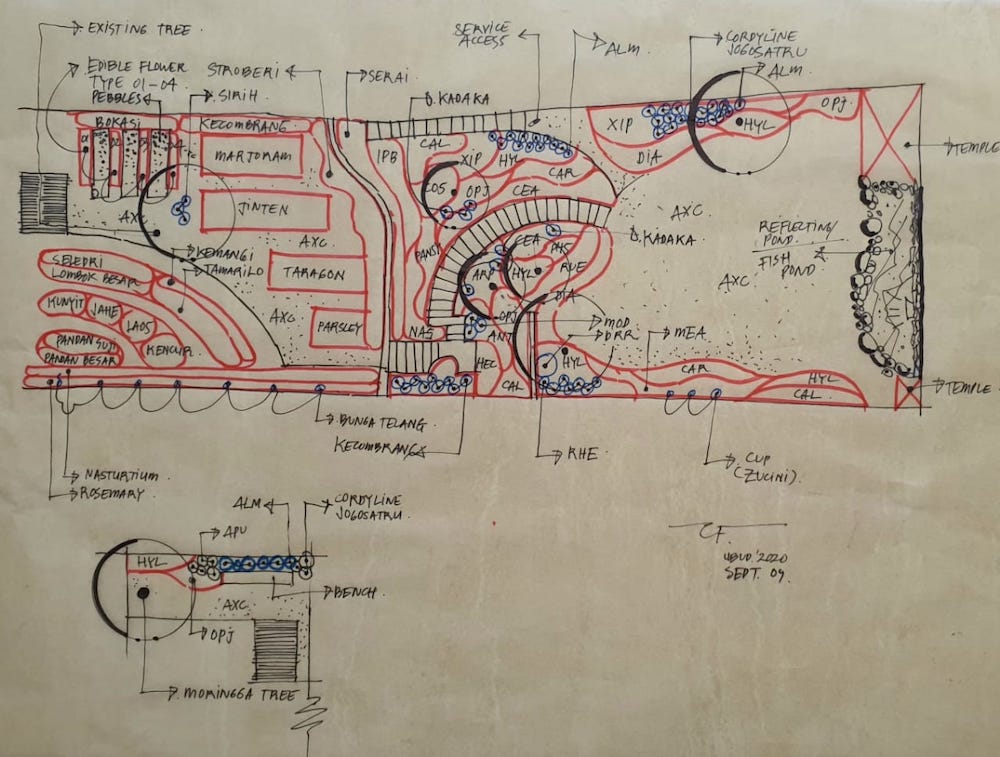 EXISTING TREE
SERVICE
ACCESS
ALM
CORDYLINE
JOGOSATRU
ALM
EDIBLE FLOWER
TYPE 01-04
PEBBLES
STROBERI
SIRIH
SERAI
D. KADAKA
BOKASI
KECOMBRANG
MARJORAM
JINTEN
AXC
AXC
TARAGON
AXC
PARSLEY
KEMANGI
TAMARILO
SELEDRI
LOMBOK BESAR
KUNYIT
JAHE
LAOS
KENCUR
PANDAN SUJI
PANDAN BESAR
IPB
CAL
XIP
HYL
CAR
COS
OPJ
CEA
PANSY
CEA
PHS
ARD
HYL
RUE
DIA
OPJ
NAS
ANT
HEL
CAL
XIP
DIA
HYL
OPJ
AXC
AXC
D. KADAKA
REFLECTING
POND.
FISH
POND
TEMPLE
TEMPLE
MOD
DRR
MEA
HYL
CAR
HYL
CAL
BUNGA TELANG
KECOMBRANG
RHE
CUP
(ZUCINI).
NASTURTIUM
ROSEMARY
ALM
CORDYLINE
JOGOSATRU
APU
HYL
AXC
BENCH
OPJ
MORINGGA TREE
CF.
UBUD '2020
SEPT. 09.